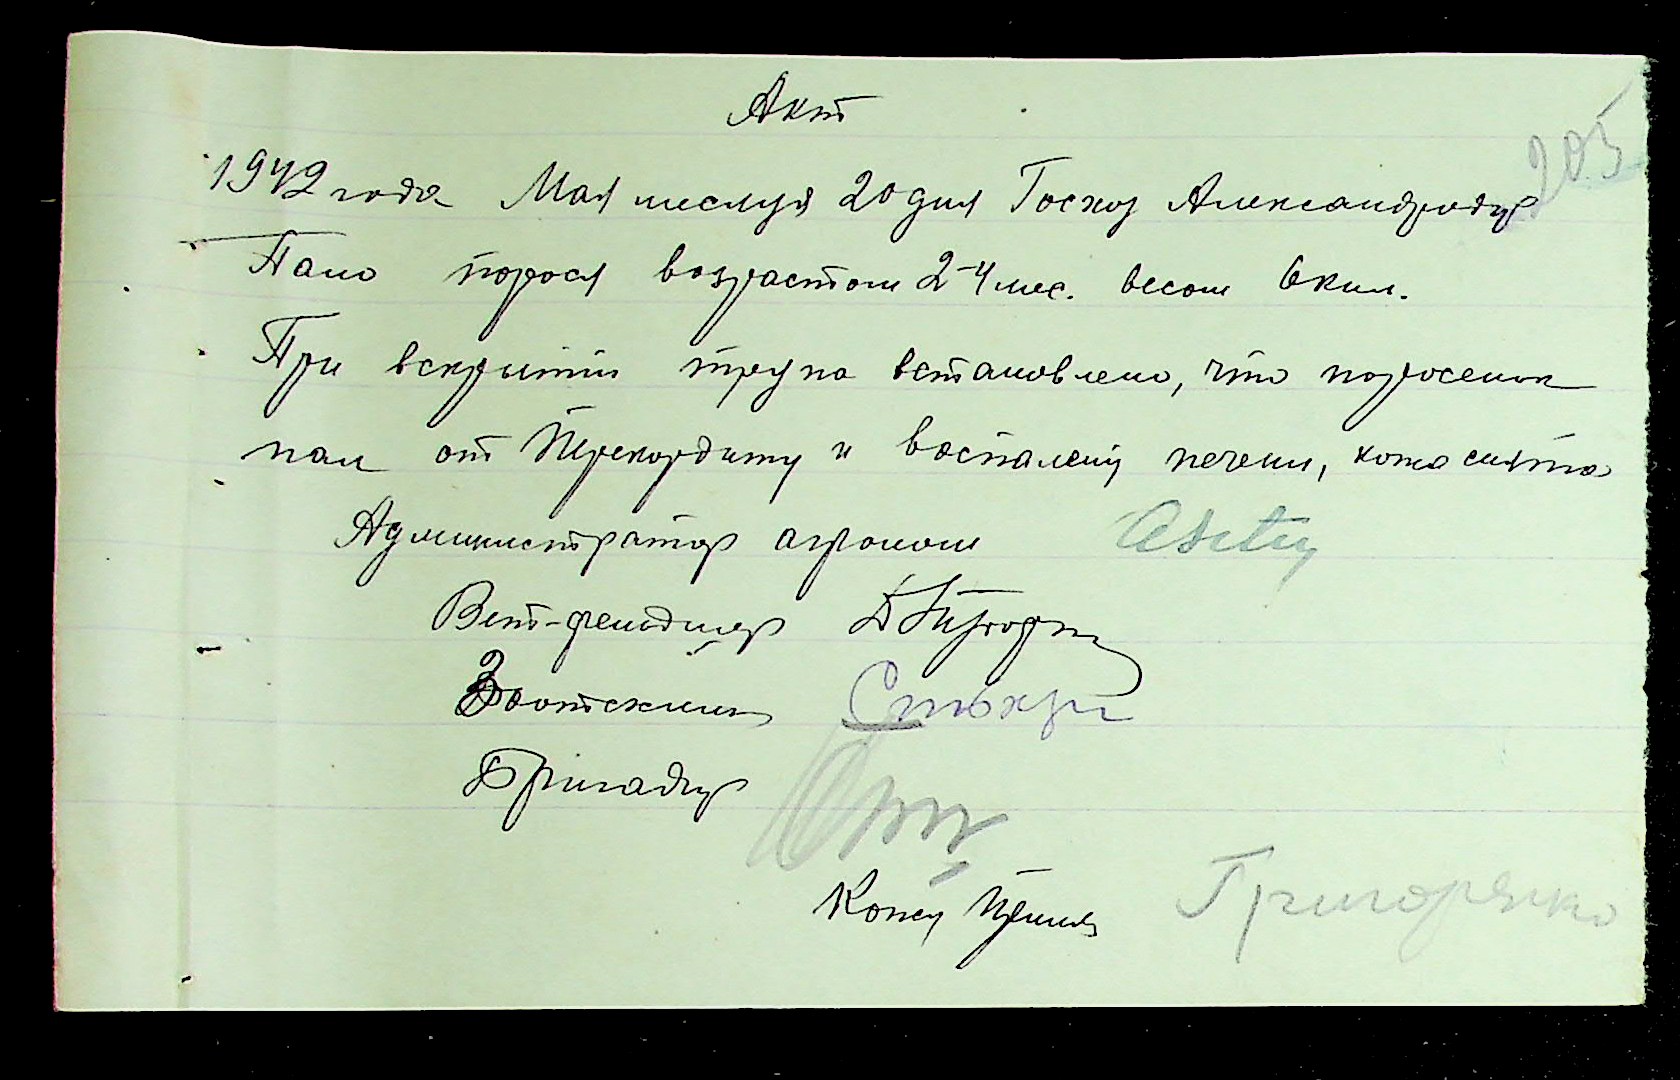 Акт
205
1942 года Мая месяця 20 дня Госхоз Александродар
Пало порося возрастом 2-4 мес. весом 6 кил.
При вскритии трупа встановлено, что поросенок
пал от Перекордиту и воспалению печени, кожа снята
Администратор агроном
Вет-фельдшер
Зоотехник
Бригадир
Кожу принял Григоренко